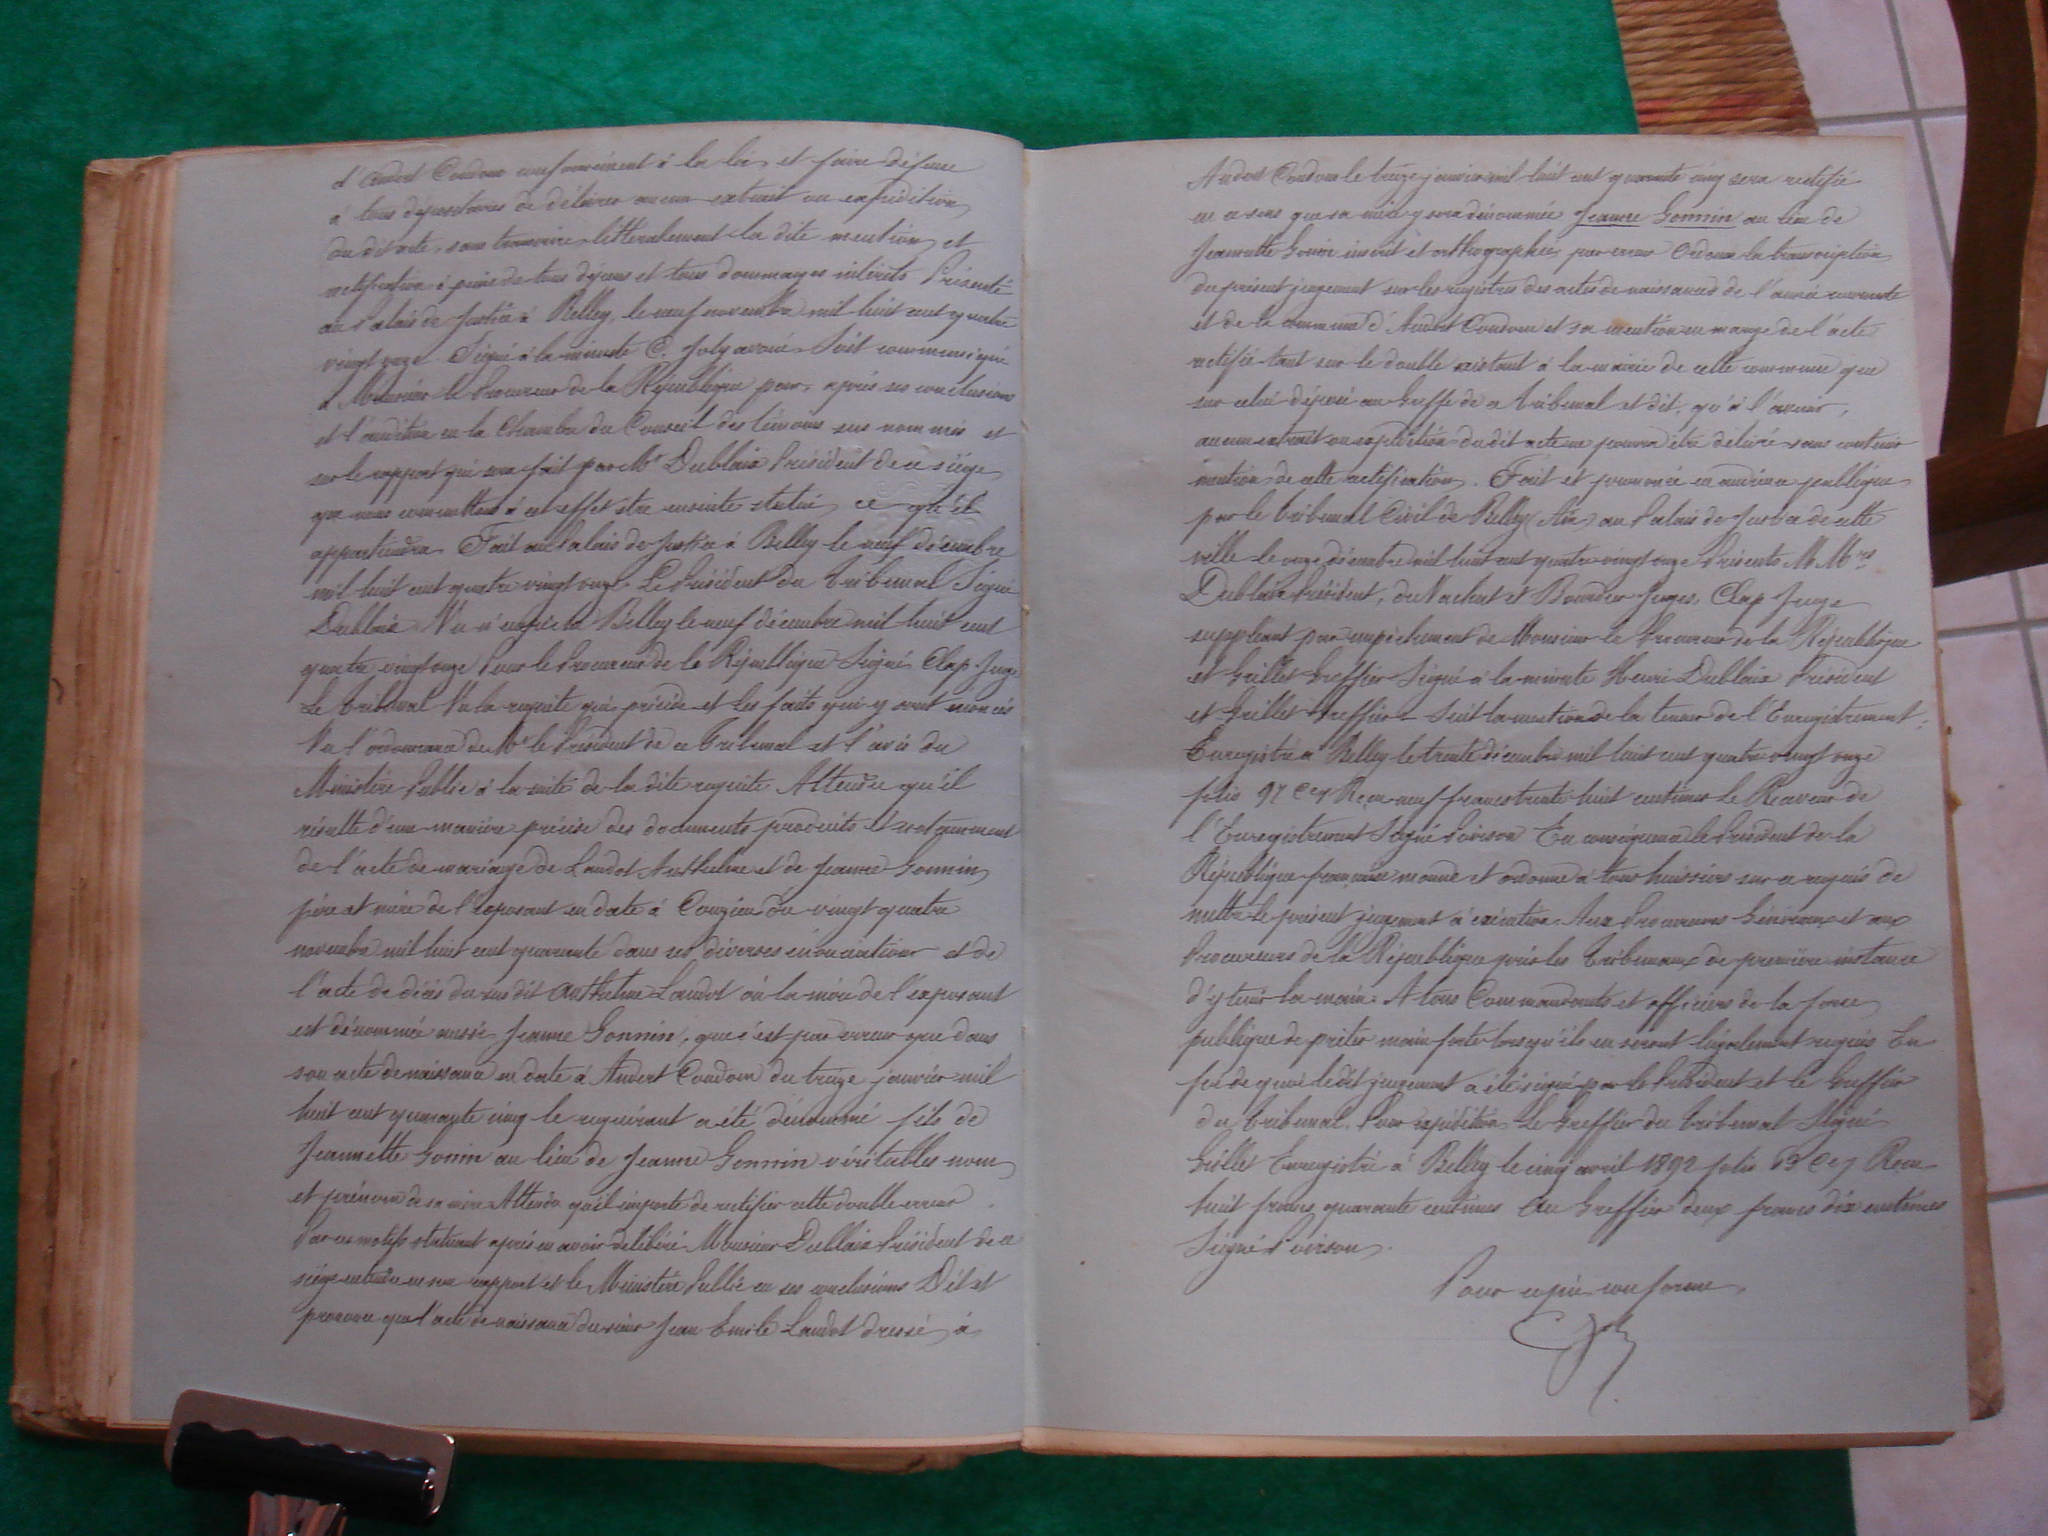 d'Andert Condon conformément à la loi, et faire défense
à tous dépositaires de délivrer aucun extrait ou expédition
du dit acte, sans transcrire littéralement la dite mention et
rectification à peine de tous dépens et tous dommages intérêts Présenté
au Palais de Justice à Belley, le neuf novembre mil huit cent quatre
vingt onze. Signé à la minute C. Joly avoué. Soit communiqué
à Monsieur le Procureur de la République pour, après ses conclusions
et l'audition en la Chambre du Conseil des témoins sus nommés et
sur le rapport qui sera fait par Mr Dublaix Président de ce siège
que nous commettons à cet effet être ensuite statué ce qu'il
appartiendra. Fait au Palais de Justice à Belley le neuf décembre
mil huit cent quatre vingt onze. Le Président du Tribunal Signé
Dublaix Vu n'empêche Belley le neuf décembre mil huit cent
quatre vingt onze Pour le Procureur de la République Signé Clap Juge
Le Tribunal Vu la requête qui précède et les faits qui y sont énoncés
Vu l'ordonnance de Mr le Président de ce Tribunal et l'avis du
Ministère Public à la suite de la dite requête Attendu qu'il
résulte d'une manière précise des documents produits et notamment
de l'acte de mariage de Laudot Anthelme et de Jeanne Gonnin,
père et mère de l'exposant en date à Couzieu du vingt quatre
novembre mil huit cent quarante dans ses diverses énonciations et de
l'acte de décès du sus dit Anthelme Laudot où la mère de l'exposant
est dénommée aussi Jeanne Gonnin, que c'est par erreur que dans
son acte de naissance en date à Andert Condon du treize janvier mil
huit cent quarante cinq le requérant a été dénommé fils de
Jeannette Gonin au lieu de Jeanne Gonnin véritables nom
et prénom de sa mère Attendu qu'il importe de rectifier cette double erreur
Par ces motifs statuant après en avoir délibéré Monsieur Dublaix Président de ce
siège entendu en son rapport et le Ministère Public en ses conclusions Dit et
prononce que l'acte de naissance du sieur Jean Emile Laudot dressé à
Andert Condon le treize janvier mil huit cent quarante cinq sera rectifié
en ce sens que sa mère y sera dénommée Jeanne Gonnin au lieu de
Jeannette Gonin inscrit et orthographié par erreur Ordonne la transcription
du présent jugement sur les registres des actes de naissances de l'année courante
et de la commune d'Andert Condon et sa mention en marge de l'acte
rectifié tant sur le double existant à la mairie de cette commune que
sur celui déposé au Greffe de ce Tribunal et dit, qu'à l'avenir,
aucun extrait ou expédition du dit acte ne pourra être délivré sans contenir
mention de cette rectification. Fait et prononcé en audience publique
par le Tribunal Civil de Belley (Ain) au Palais de Justice de cette
ville le onze décembre mil huit cent quatre vingt onze Présents M Mrs
Dublaix Président, du Vachat et Bourder Juges, Clap Juge
suppléant pour empêchement de Monsieur le Procureur de la République
et Grillet Greffier Signé à la minute Henri Dublaix Président
et Grillet Greffier. Suit la mention de la teneur de l'Enregistrement
Enregistré à Belley le trente décembre mil huit cent quatre vingt onze
folio 97 Cey Reçu neuf francs trente huit centimes Le Receveur de
l'Enregistrement Signé Poirson En conséquence le Président de la
République française mande et ordonne à tous huissiers sur ce requis de
mettre le présent jugement à exécution. Aux Procureurs Généraux et aux
Procureurs de la République près les Tribunaux de première instance
d'y tenir la main. A tous Commandants et officiers de la force
publique de prêter main forte lorsqu'ils en seront légalement requis En
foi de quoi le dit jugement a été signé par le Président et le Greffier
du Tribunal. Pour expédition Le Greffier du Tribunal Signé
Grillet Enregistré à Belley le cinq avril 1892 folio Cey Reçu
huit francs quarante centimes Au Greffier deux francs dix centimes
Signé Poirson.
Pour copie conforme,